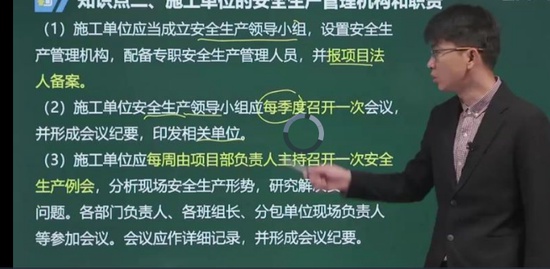 知识点二、施工单位的安全生产管理机构和职责
（1）施工单位应当成立安全生产领导小组，设置安全生
产管理机构，配备专职安全生产管理人员，并报项目法
人备案。
（2）施工单位安全生产领导小组应每季度召开一次会议，
并形成会议纪要，印发相关单位。
（3）施工单位应每周由项目部负责人主持召开一次安全
生产例会，分析现场安全生产形势，研究解决
问题。各部门负责人、各班组长、分包单位现场负责人
等参加会议。会议应作详细记录，并形成会议纪要。